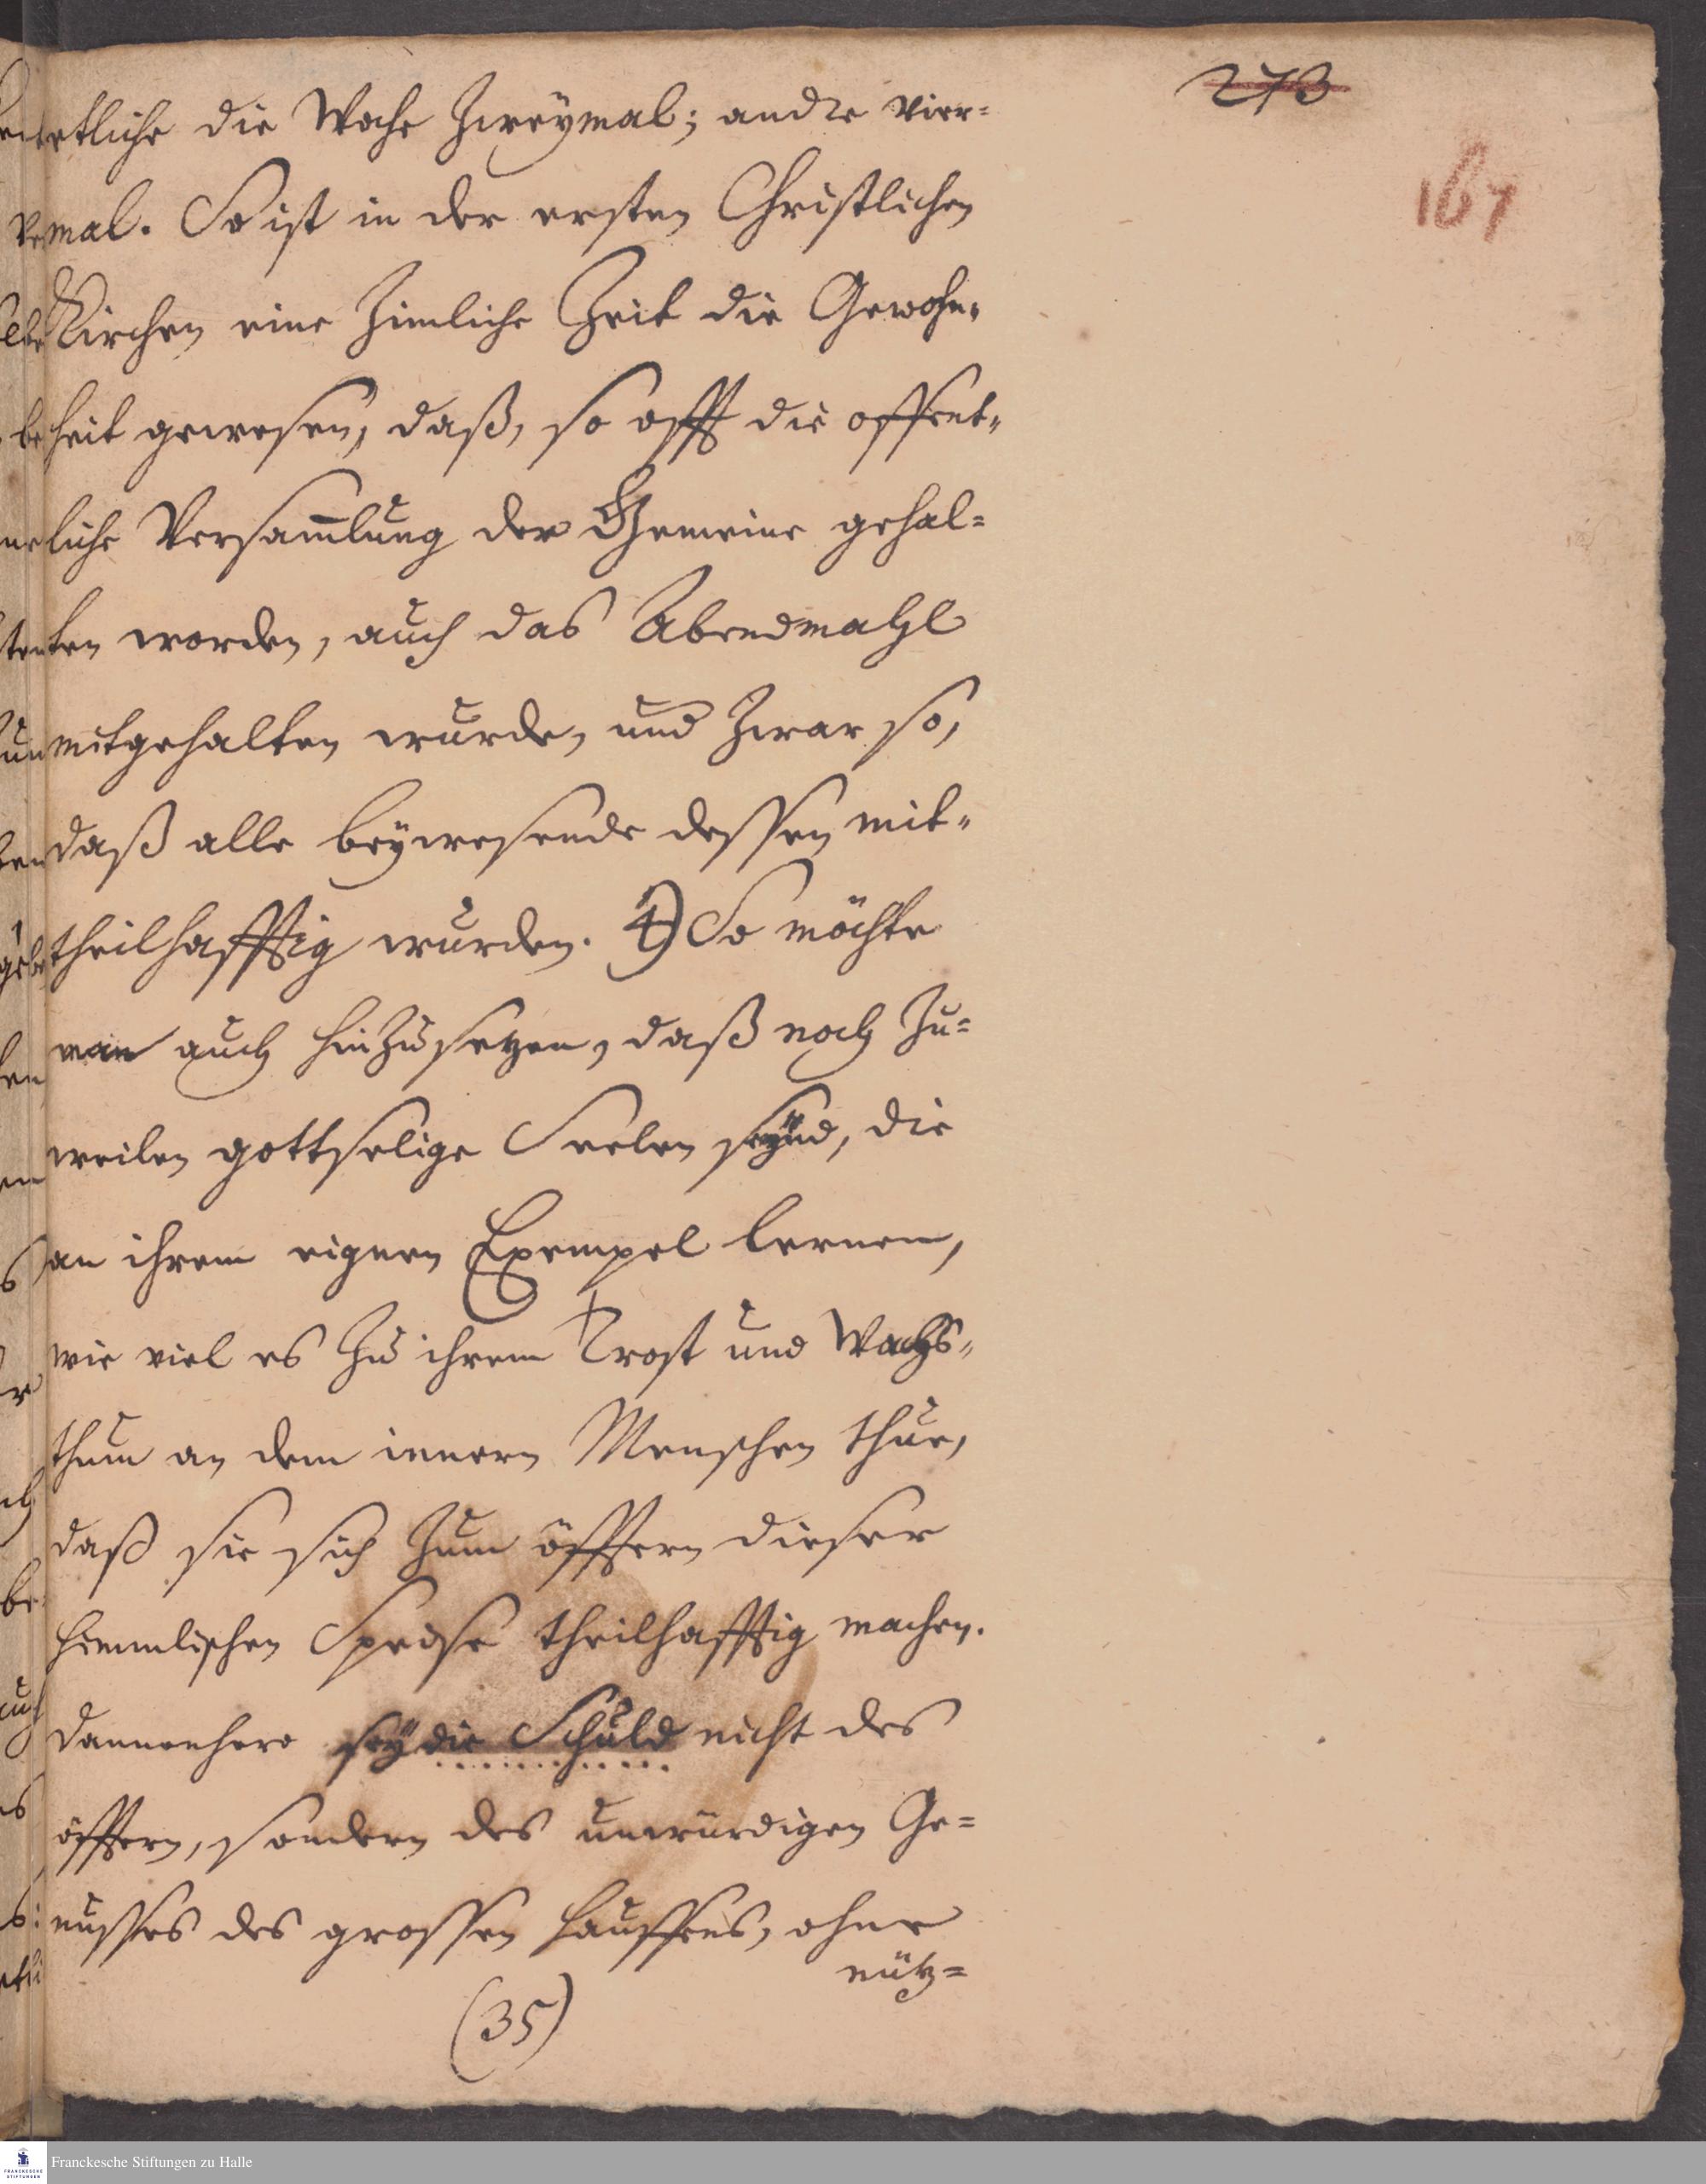 273
167
etliche die Woche zweÿmal; andre vier=
mal. So ist in der ersten Christlichen
Kirchen eine zimliche Zeit die Gewohn=
heit gewesen, daß, so offt die offent=
liche Versam̄lung der Gemeine gehal=
ten worden, auch das Abendmahl
mitgehalten wurde, und zwar so,
daß alle beÿwesende dessen mit=
theilhafftig wurden. 4) So möchte
man auch hinzu setzen, daß noch zu=
weilen gottselige Seelen seÿnd, die
an ihrem eignen Exempel lernen,
wie viel es zu ihrem Trost und Wachs=
thum an dem innern Menschen thue,
daß sie sich zum öfftern dieser
himmlischen Speise theilhafftig machen.
Dannenhero seÿ die Schuld nicht des
öfftern, sondern des unwürdigen Ge=
nusses des grossen Hauffens, ohne
nütz=
(35)
Franckesche Stiftungen zu Halle